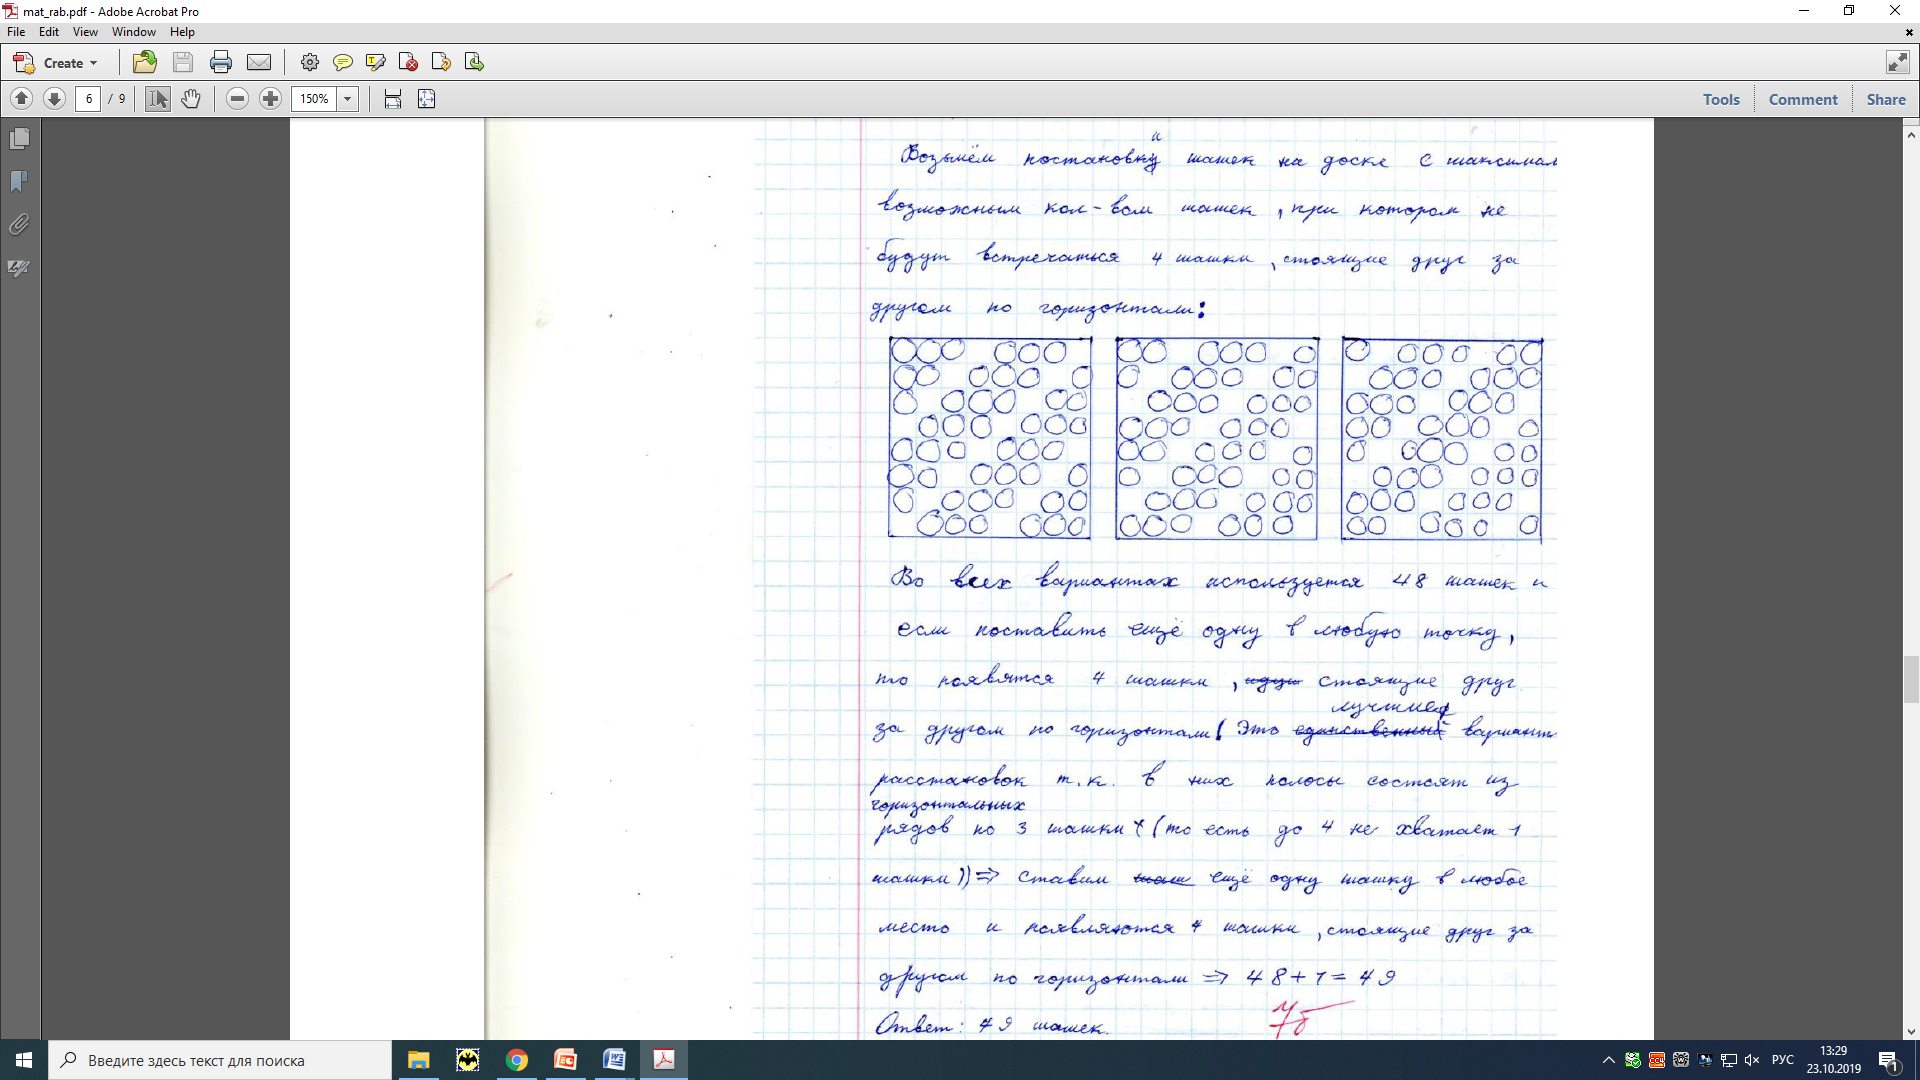 mat_rab.pdf - Adobe Acrobat Pro
File Edit View Window Help
Create
6 / 9 150% Tools Comment Share
Возьмём постановки шашек на доске с максимал
возможным кол-вом шашек, при котором не
будут встречаться 4 шашки, стоящие друг за
другом по горизонтали:
Во всех вариантах используется 48 шашек и
если поставить ещё одну в любую точку,
то появятся 4 шашки, стоящие друг
лучшие
за другом по горизонтали( Это единственный вариант
расстановок т.к. в них полосы состоят из
горизонтальных
рядов по 3 шашки (то есть до 4 не хватает 1
шашки)) ⇒ ставим ещё одну шашку в любое
место и появляются 4 шашки, стоящие друг за
другом по горизонтали ⇒ 48+1=49
Ответ: 49 шашек.
7б
Введите здесь текст для поиска
РУС
13:29
23.10.2019
1